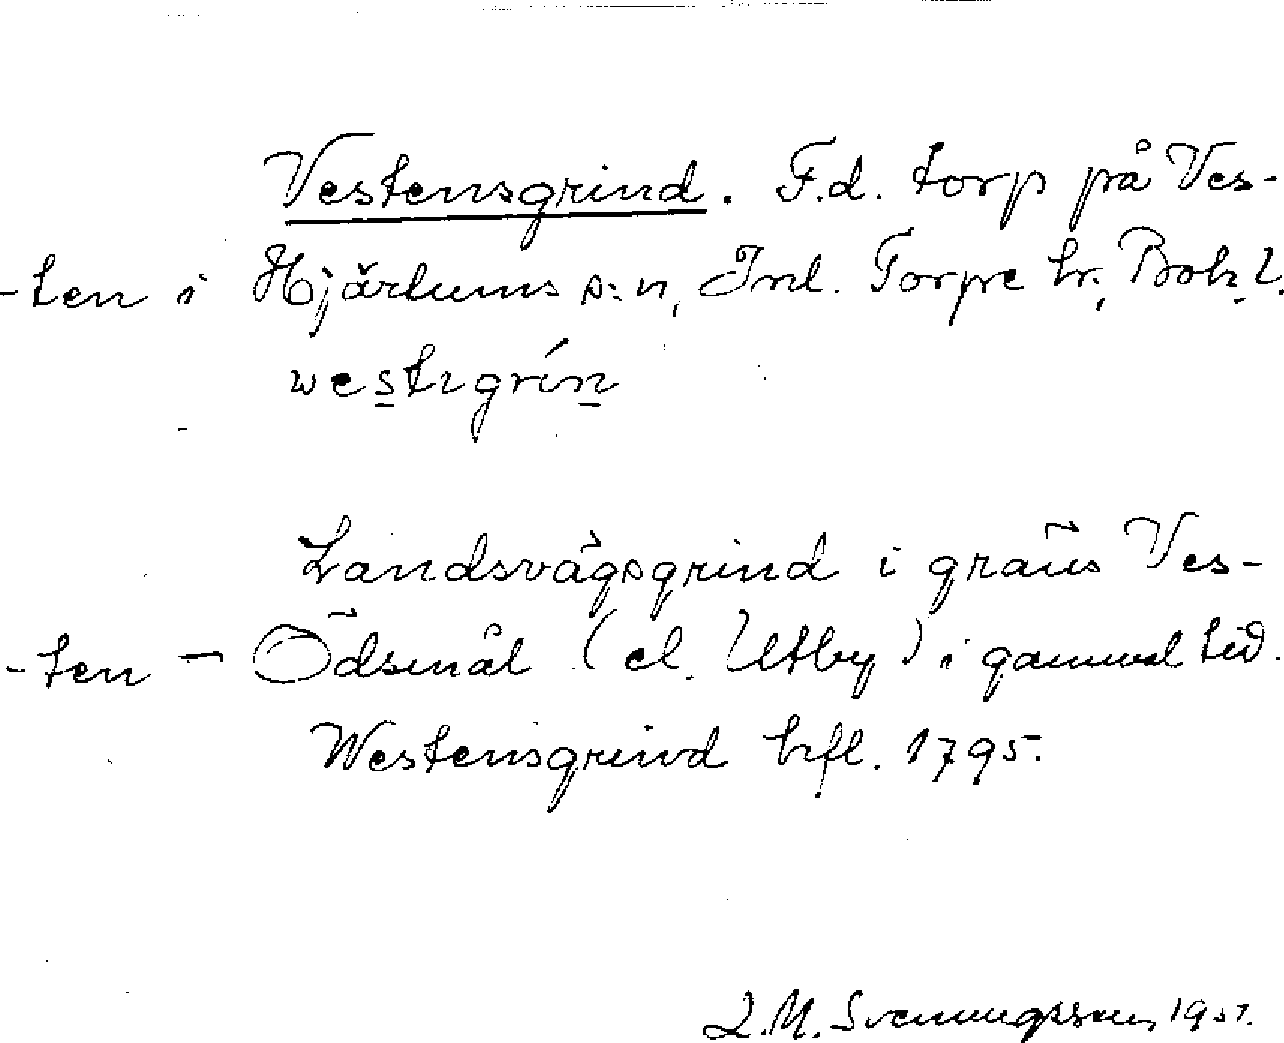 Vestensgrind. F.d. torp på Ves-
-ten i Hjärtums s:n, Inl. Torpe hr., Boh. l.
westngrín
Landsvägsgrind i gräns Ves-
-ten - Ödsmål (el. Utby) i gammal tid.
Westensgrind hfl. 1795.
L.M. Svenungsson 19